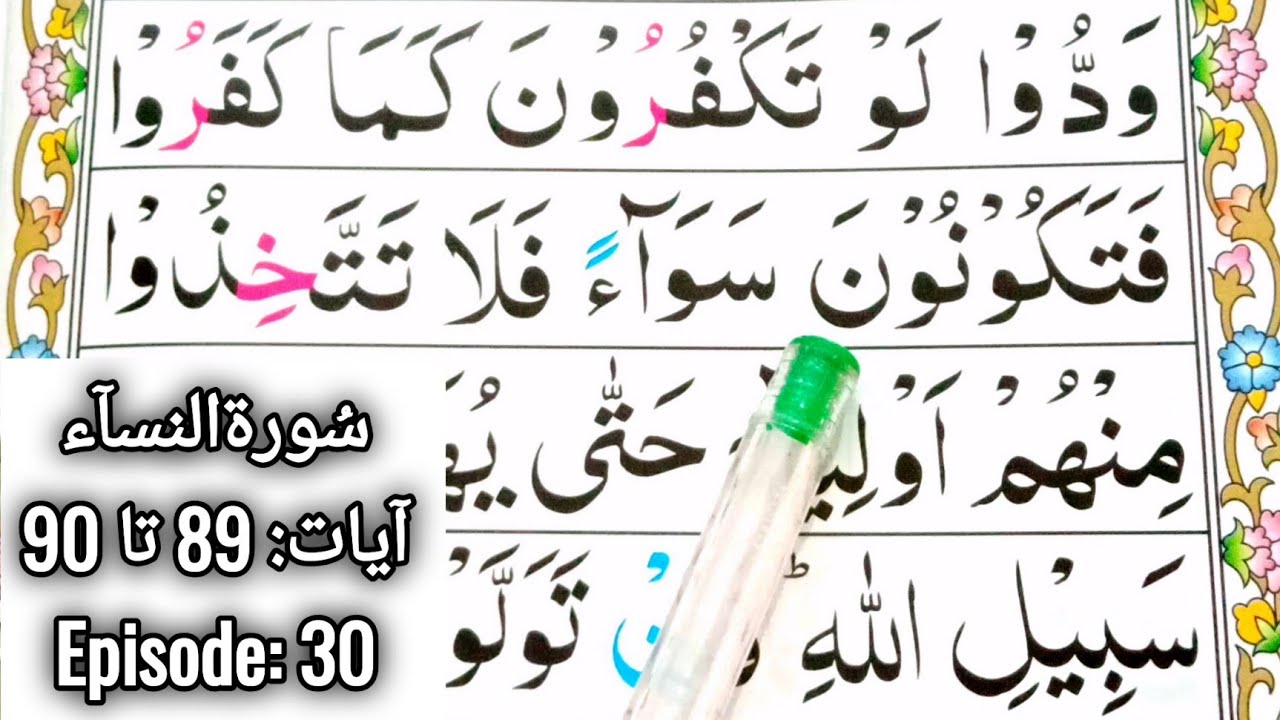 وَدُّوْا لَوْ تَكْفُرُوْنَ كَمَا كَفَرُوْا
فَتَكُوْنُوْنَ سَوَآءً فَلَا تَتَّخِذُوْا
مِنْهُمْ حَتّٰى
سَبِيْلِ اللّٰهِؕ تَوَلَّوْ
سُورۃالنسآء
آیات: 89 تا 90
Episode: 30